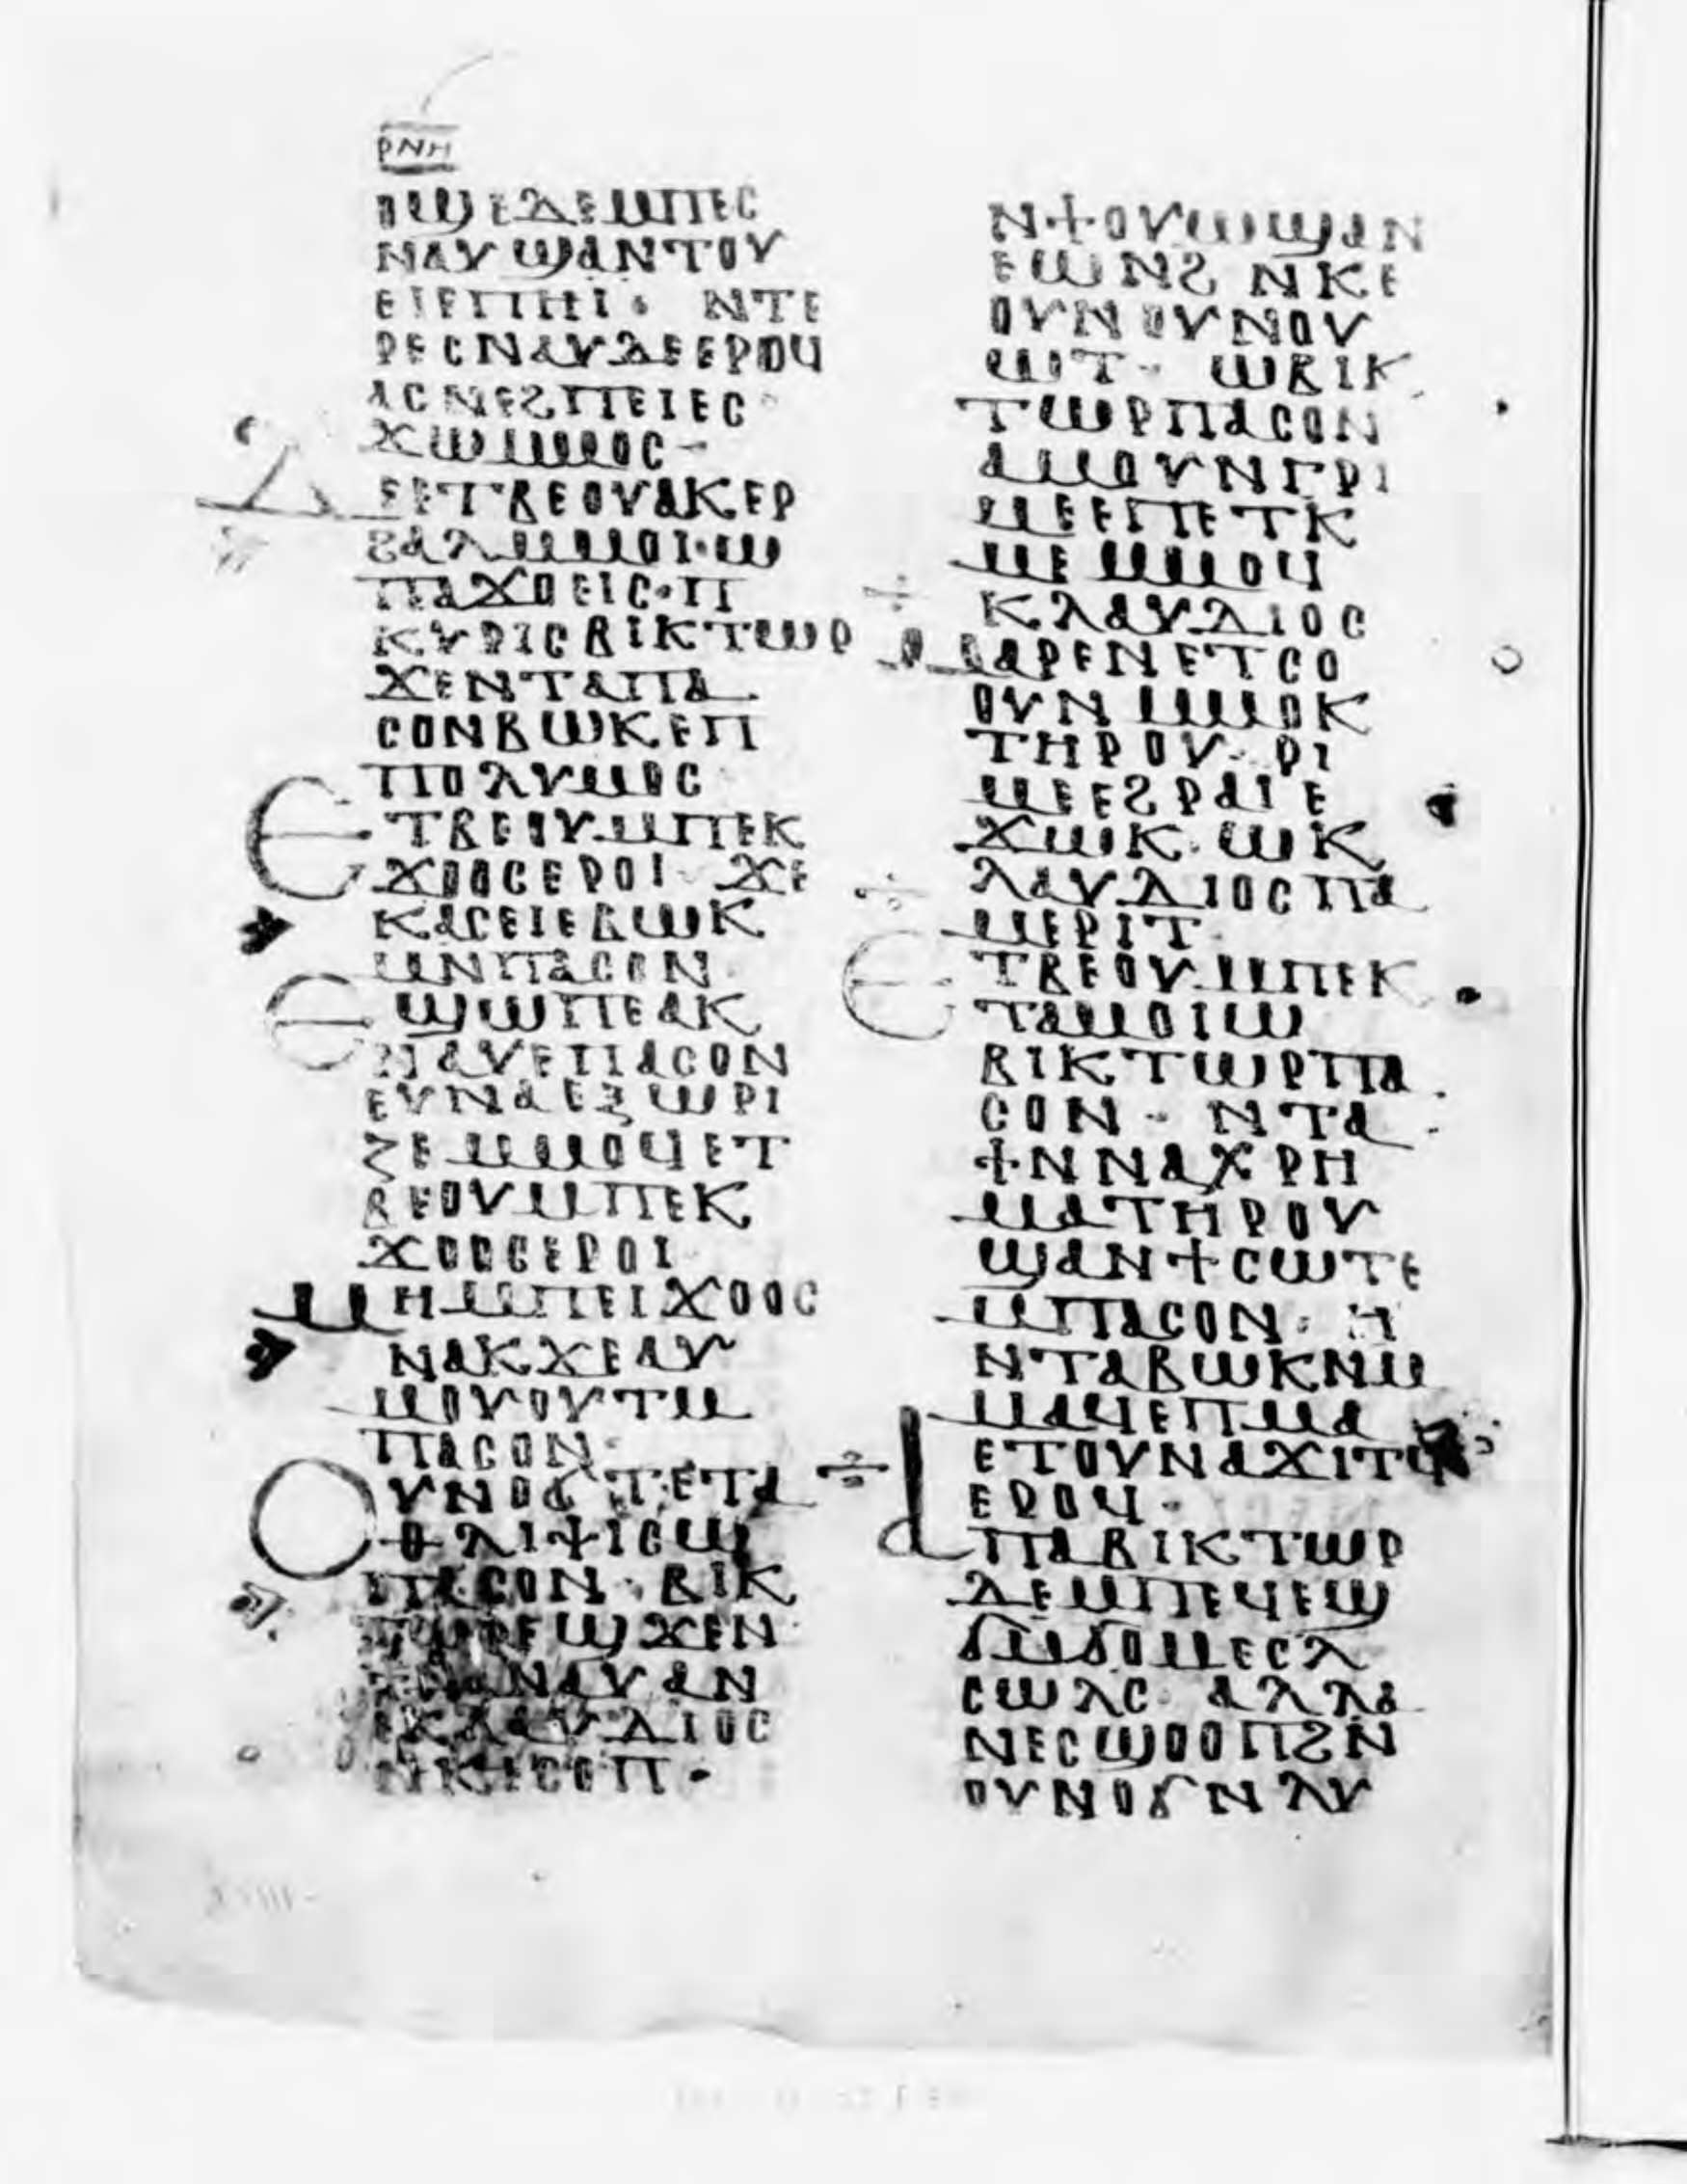 ⲣⲛⲏ
ⲟϣⲉⲇⲉⲙⲡⲉⲥ
ⲛⲁⲩϣⲁⲛⲧⲟⲩ
ⲉⲓⲉⲡⲏⲓ· ⲛⲧⲉ
ⲣⲉⲥⲛⲁⲩⲇⲉⲉⲣⲟϥ
ⲁⲥⲛⲉϩⲡⲉⲓⲉⲥ
ϫⲱⲙⲙⲟⲥ-
ⲇⲉⲉⲧⲃⲉⲟⲩⲁⲕⲉⲣ
ϩⲁⲗⲙⲙⲟⲓ·ⲱ
ⲡⲁϫⲟⲉⲓⲥ·ⲡ
ⲕⲩⲣⲓⲥⲃⲓⲕⲧⲱⲣ
ϫⲉⲛⲧⲁⲡⲁ
ⲥⲟⲛⲃⲱⲕⲉⲡ
ⲡⲟⲗⲩⲙⲟⲥ
ⲉⲧⲃⲉⲟⲩⲙⲡⲉⲕ
ϫⲟⲟⲥⲉⲣⲟⲓ ϫⲉ
ⲕⲁⲥⲉⲓⲉⲃⲱⲕ
ⲙⲛⲡⲁⲥⲟⲛ
ⲉϣⲱⲡⲉⲁⲕ
ⲛⲁⲩⲉⲡⲁⲥⲟⲛ
ⲉⲩⲛⲁⲉⲝⲱⲣⲓ
ⲍⲉⲙⲙⲟϥⲉⲧ
ⲃⲉⲟⲩⲙⲡⲉⲕ
ϫⲟⲟⲥⲉⲣⲟⲓ
ⲙⲏⲙⲡⲉⲓϫⲟⲟⲥ
ⲛⲁⲕϫⲉⲁⲩ
ⲙⲟⲩⲟⲩⲧⲙ
ⲡⲁⲥⲟⲛ
ⲟⲩⲛⲟϭⲧⲉⲧⲁ
ⲑⲗⲓⲯⲓⲥⲱ
ⲡⲁⲥⲟⲛ·ⲃⲓⲕ
ⲧⲱⲣⲉϣϫⲉⲛ
ϯⲛⲁⲛⲁⲩⲁⲛ
ⲉⲕⲗⲁⲩⲇⲓⲟⲥ
ⲛⲕⲉⲥⲟⲡ·
ⲛϯⲟⲩⲱϣⲁⲛ
ⲉⲱⲛϩ ⲛⲕⲉ
ⲟⲩⲛⲟⲩⲛⲟⲩ
ⲱⲧ· ⲱⲃⲓⲕ
ⲧⲱⲣⲡⲁⲥⲟⲛ
ⲁⲙⲟⲩⲛⲅⲣⲓ
ⲙⲉⲉⲡⲉⲧⲕ
ⲙⲉⲙⲙⲟϥ
ⲕⲗⲁⲩⲇⲓⲟⲥ
ⲙⲁⲣⲉⲛⲉⲧⲥⲟ
ⲟⲩⲛⲙⲙⲟⲕ
ⲧⲏⲣⲟⲩ· ⲣⲓ
ⲙⲉⲉϩⲣⲁⲓⲉ
ϫⲱⲕ·ⲱⲕ
ⲗⲁⲩⲇⲓⲟⲥⲡⲁ
ⲙⲉⲣⲓⲧ
ⲉⲧⲃⲉⲟⲩⲙⲡⲉⲕ
ⲧⲁⲙⲟⲓⲱ
ⲃⲓⲕⲧⲱⲣⲡⲁ
ⲥⲟⲛ· ⲛⲧⲁ
ϯⲛⲛⲁⲭⲣⲏ
ⲙⲁⲧⲏⲣⲟⲩ
ϣⲁⲛϯⲥⲱⲧⲉ
ⲙⲡⲁⲥⲟⲛ· ⲏ
ⲛⲧⲁⲃⲱⲕⲛⲙ
ⲙⲁϥⲉⲡⲙⲁ
ⲉⲧⲟⲩⲛⲁϫⲓⲧϥ
ⲉⲣⲟϥ·
ⲁⲡⲁⲃⲓⲕⲧⲱⲣ
ⲇⲉⲙⲡⲉϥⲉϣ
ϭⲙϭⲟⲙⲉⲥⲗ
ⲥⲱⲗⲥ· ⲁⲗⲗⲁ
ⲛⲉⲥϣⲟⲟⲡϩⲛ
ⲟⲩⲛⲟϭⲛⲗⲩ